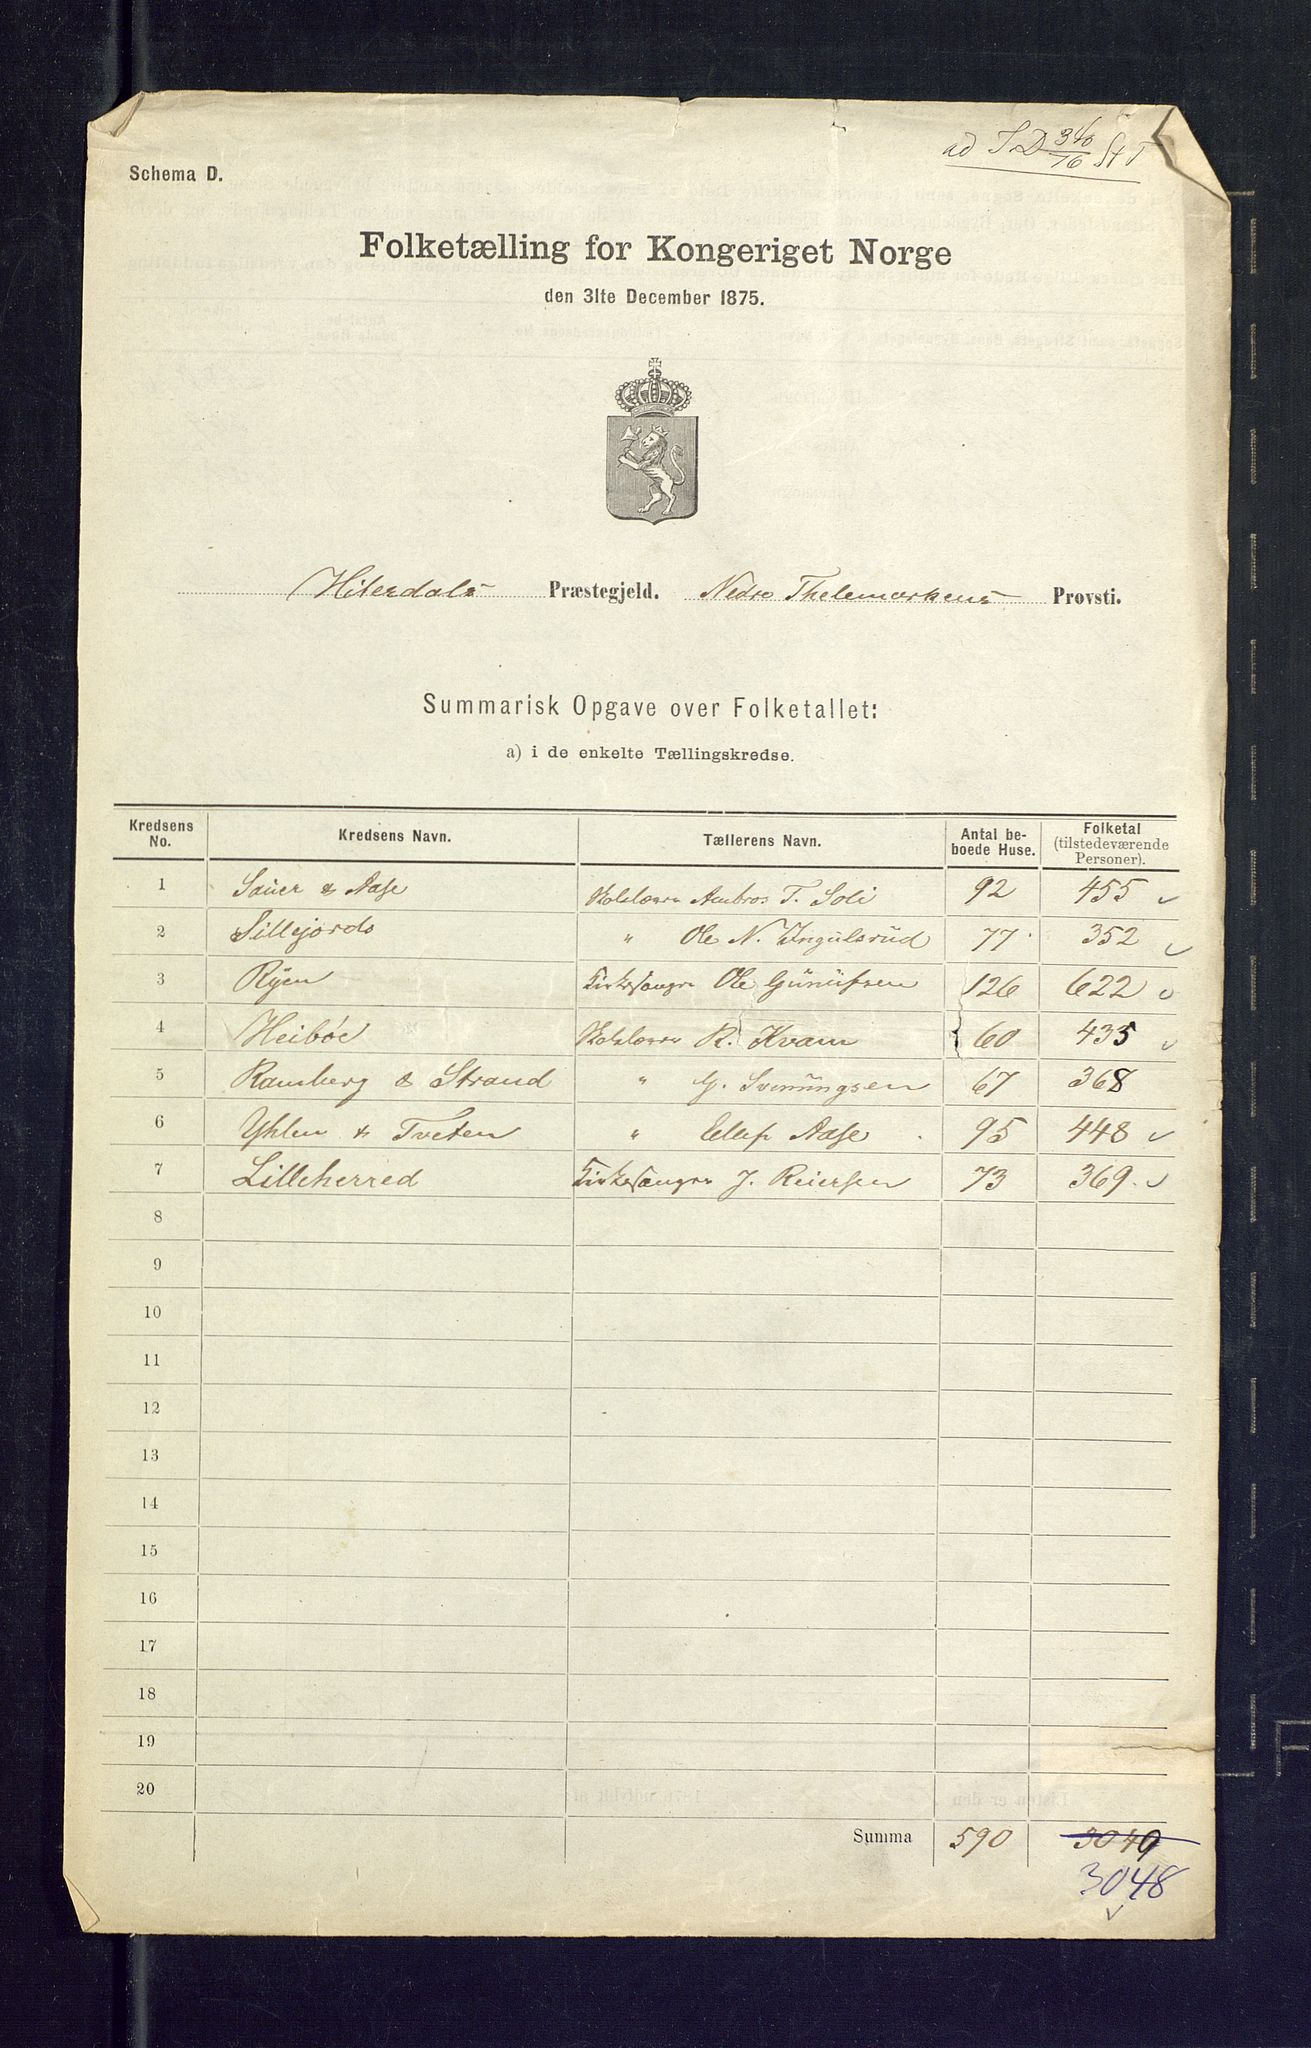 ad S D 340/76 St T
Schema D.
Folketælling for Kongeriget Norge
den 31te December 1875.
Hiterdals Præstegjeld. Nedre Thelemarkens Provsti.
Summarisk Opgave over Folketallet:
a) i de enkelte Tællingskredse.
Kredsens No. Kredsens Navn. Tællerens Navn. Antal beboede Huse. Folketal (tilstedeværende Personer).
1 Sauer & Aase Skolelærer Ambros T. Soli 92 455
2 Lillejords " Ole N. Yngulsrud 77 352
3 Ryen Kirkesanger Ole Gunulfsen 126 622
4 Heibøe Skolelærer R. Kvam 60 435
5 Ramberg & Strand " G. Svennungsen 67 368
6 Yhlen & Tveten " Ellef Aase 95 448
7 Lilleherred Kirkesanger J. Reiersen 73 369
8
9
10
11
12
13
14
15
16
17
18
19
20
Summa 590 3049
3048